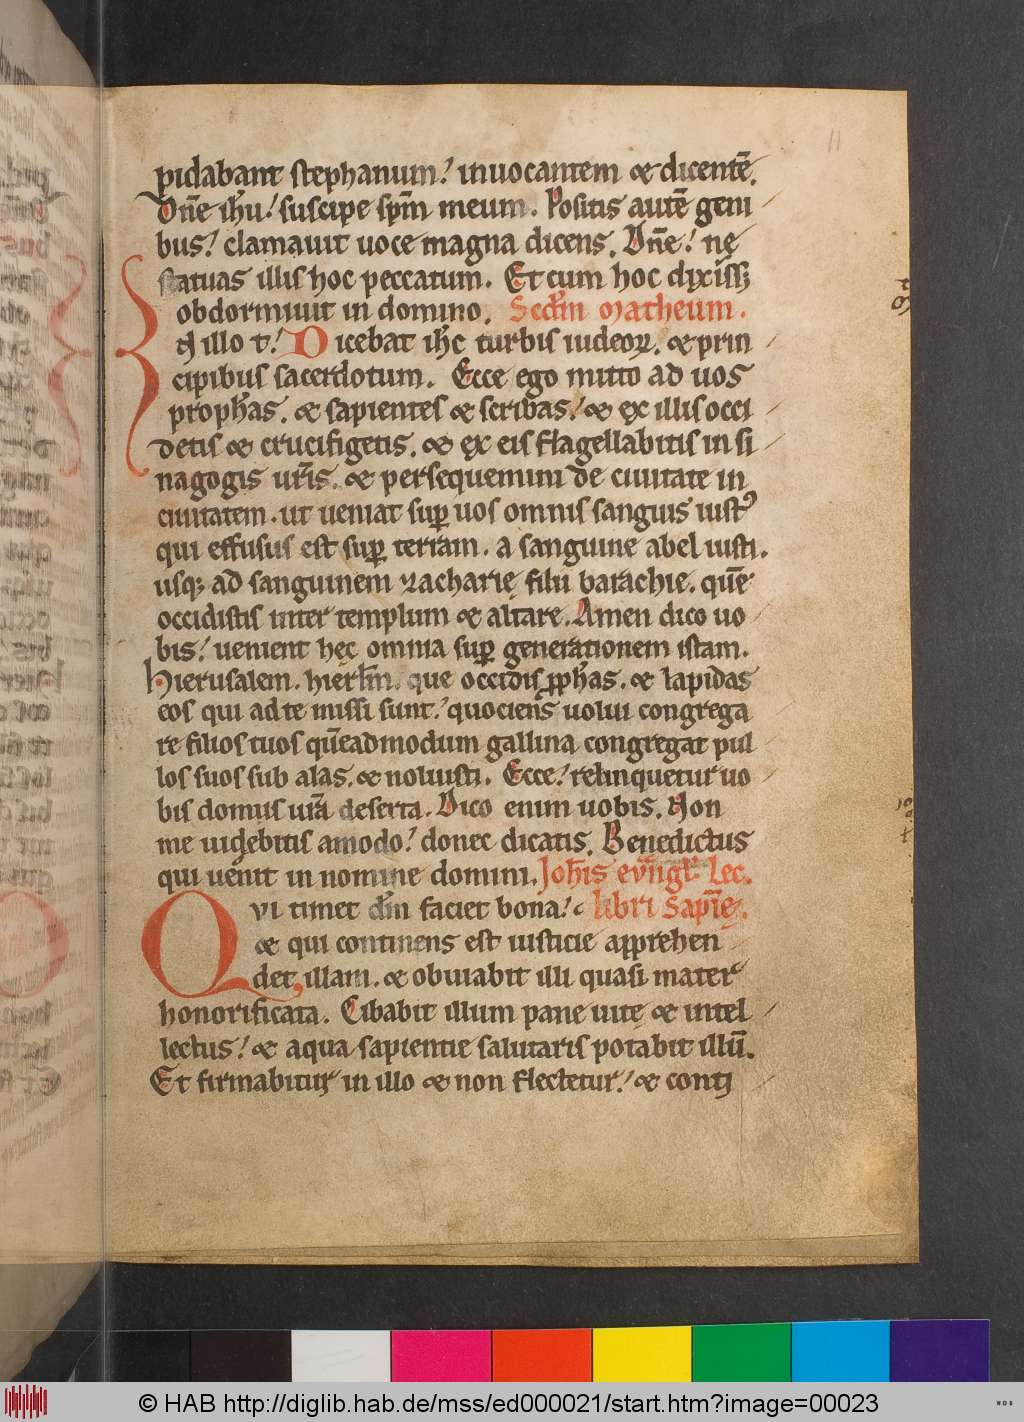 11
pidabant stephanum! inuocantem & dicentē.
Dn̄e ih̄u! suscipe sp̄m meum. Positis autē geni
bus! clamauit uoce magna dicens. Dn̄e! ne
statuas illis hoc peccatum. Et cum hoc dixiss;
obdormiuit in domino. Scdm̄ Matheum.
In illo t! Dicebat ih̄c turbis iudeoꝝ. & prin
cipibus sacerdotum. Ecce ego mitto ad uos
proph̄as. & sapientes & scribas! & ex illis occi
detis & crucifigetis. & ex eis flagellabitis in si
nagogis ur̄is. & persequemini de ciuitate in
ciuitatem. ut ueniat suꝑ uos omnis sanguis iustꝰ
qui effusus est suꝑ terram. a sanguine abel iusti.
usq; ad sanguinem zacharię filii barachie. quē
occidistis inter templum & altare. Amen dico uo
bis! uenient hęc omnia suꝑ generationem istam.
Hierusalem. hierlm̄. que occidis ꝓph̄as. & lapidas
eos qui ad te missi sunt! quociens uolui congrega
re filios tuos quēadmodum gallina congregat pul
los suos sub alas. & noluisti. Ecce! relinquetur uo
bis domus ur̄a deserta. Dico enim uobis. Non
me uidebitis amodo! donec dicatis. Benedictus
qui uenit in nomine domini. Joh̄is ev̄ngl. Lec.
Qvi timet dm̄ faciet bona! libri Sapīe.
& qui continens est iusticie apprehen
det illam. & obuiabit illi quasi mater
honorificata. Cibabit illum pane uitę & intel
lectus! & aqua sapientie salutaris potabit illū.
Et firmabitur in illo & non flectetur! & conti
© HAB http://diglib.hab.de/mss/ed000021/start.htm?image=00023